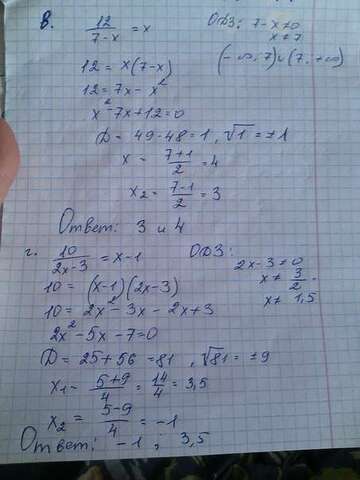 в. 12/(7-x) = x ОДЗ: 7-x≠0
x≠7
12 = x(7-x) (-∞;7)∪(7;+∞)
12 = 7x - x²
x² - 7x + 12 = 0
D = 49 - 48 = 1, √1 = ±1
x = (7+1)/2 = 4
x₂ = (7-1)/2 = 3
Ответ: 3 и 4
г. 10/(2x-3) = x-1 ОДЗ:
2x-3≠0
10 = (x-1)(2x-3) x≠3/2
10 = 2x² - 3x - 2x + 3 x≠1,5
2x² - 5x - 7 = 0
D = 25 + 56 = 81, √81 = ±9
x₁ = (5+9)/4 = 14/4 = 3,5
x₂ = (5-9)/4 = -1
Ответ: -1; 3,5